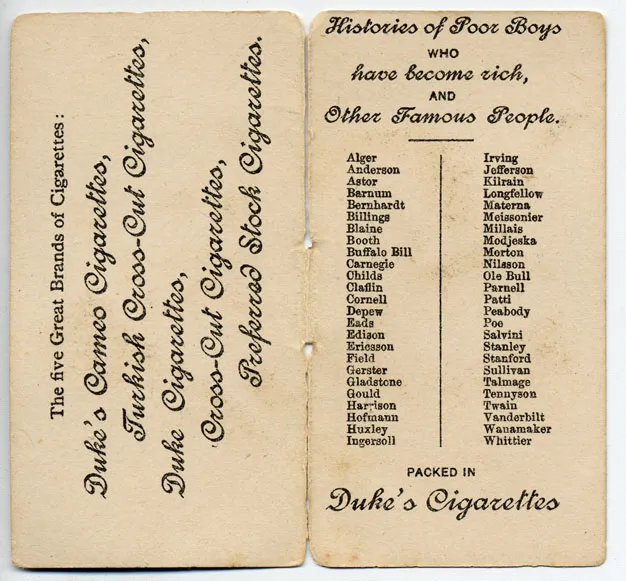 The five Great Brands of Cigarettes:
Duke's Cameo Cigarettes,
Turkish Cross-Cut Cigarettes,
Duke Cigarettes,
Cross-Cut Cigarettes,
Preferred Stock Cigarettes.
Histories of Poor Boys
WHO
have become rich,
AND
Other Famous People.
Alger
Anderson
Astor
Barnum
Bernhardt
Billings
Blaine
Booth
Buffalo Bill
Carnegie
Childs
Claflin
Cornell
Depew
Eads
Edison
Ericsson
Field
Gerster
Gladstone
Gould
Harrison
Hofmann
Huxley
Ingersoll
Irving
Jefferson
Kilrain
Longfellow
Materna
Meissonier
Millais
Modjeska
Morton
Nilsson
Ole Bull
Parnell
Patti
Peabody
Poe
Salvini
Stanley
Stanford
Sullivan
Talmage
Tennyson
Twain
Vanderbilt
Wanamaker
Whittier
PACKED IN
Duke's Cigarettes